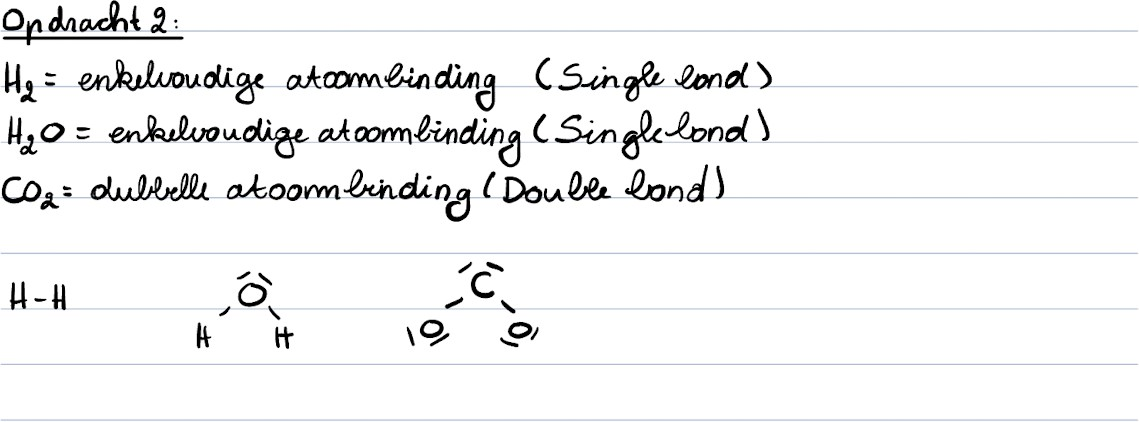 Opdracht 2:
H₂ = enkelvoudige atoombinding (Single bond)
H₂O = enkelvoudige atoombinding (Single bond)
CO₂ = dubbelle atoombinding (Double bond)
H-H O C
H H O O